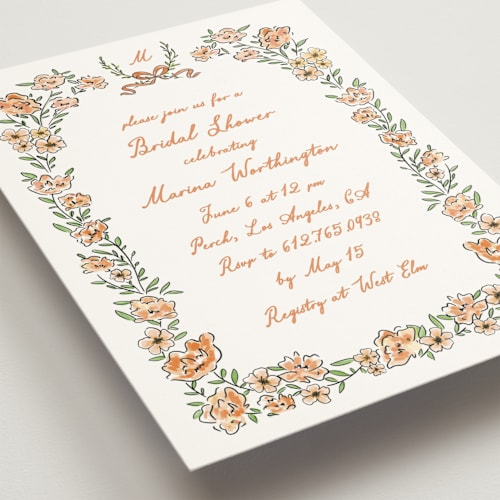 M
please join us for a
Bridal Shower
celebrating
Marina Worthington
June 6 at 12 pm
Perch, Los Angeles, CA
Rsvp to 612.765.0938
by May 15
Registry at West Elm